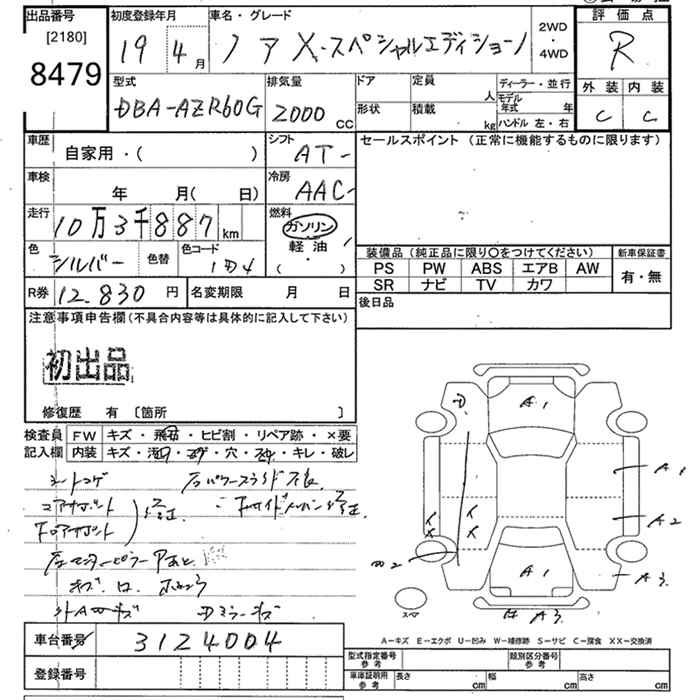 出品番号
[2180]
8479
初度登録年月
19年 4月
車名・グレード
ノア X-スペシャルエディション
2WD
・
4WD
評価点
R
外装 内装
C C
型式
DBA-AZR60G
排気量
2000 CC
ドア
定員
人
形状
積載
kg
ディーラー・並行
モデル年式 年
ハンドル 左・右
車歴
自家用・( )
シフト
AT-
セールスポイント (正常に機能するものに限ります)
車検
年 月( 日)
冷房
AAC-
走行
10万3千887 km
燃料
ガソリン
軽油
( ・ )
色
シルバー
色替
色コード
1D4
装備品(純正品に限り○をつけてください)
新車保証書
PS PW ABS エアB AW
SR ナビ TV カワ
有・無
R券 12.830 円
名変期限 月 日
後日品
注意事項申告欄(不具合内容等は具体的に記入して下さい)
初出品
修復歴 有 〔箇所 〕
検査員記入欄
FW キズ・飛石・ヒビ割・リペア跡・×要
内装 キズ・・・穴・・キレ・破レ
シートコゲ 左パワースライド不良
コアサポート
修正
キズ
Dミラーキズ
A1
A1
A2
A3
A1
A3
スペア
A-キズ E-エクボ U-凹み W-補修跡 S-サビ C-腐食 XX-交換済
車台番号 3124004
登録番号
型式指定番号
参考
類別区分番号
参考
車庫証明用
参考
長さ cm
幅 cm
高さ cm